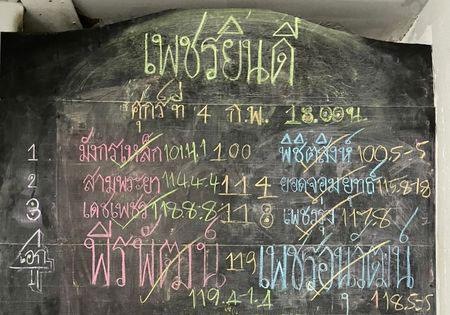 เพชรยินดี
ศุกร์ที่ 4 ก.พ. 18.00น
1 มังกรเหล็ก 101.4.1 100 พิชิตสิงห์ 100.5-5
2 สามพระยา 114.4-4 114 ยอดจอมยุทธ์ 115.8-1.8
3 เดชเพชร 118.8.8 118 เพชรรุ่ง 117.8
4 เอก พีรพัฒน์ 119 เพชรอนุวัฒน์
119.4-1.4 118.5-5